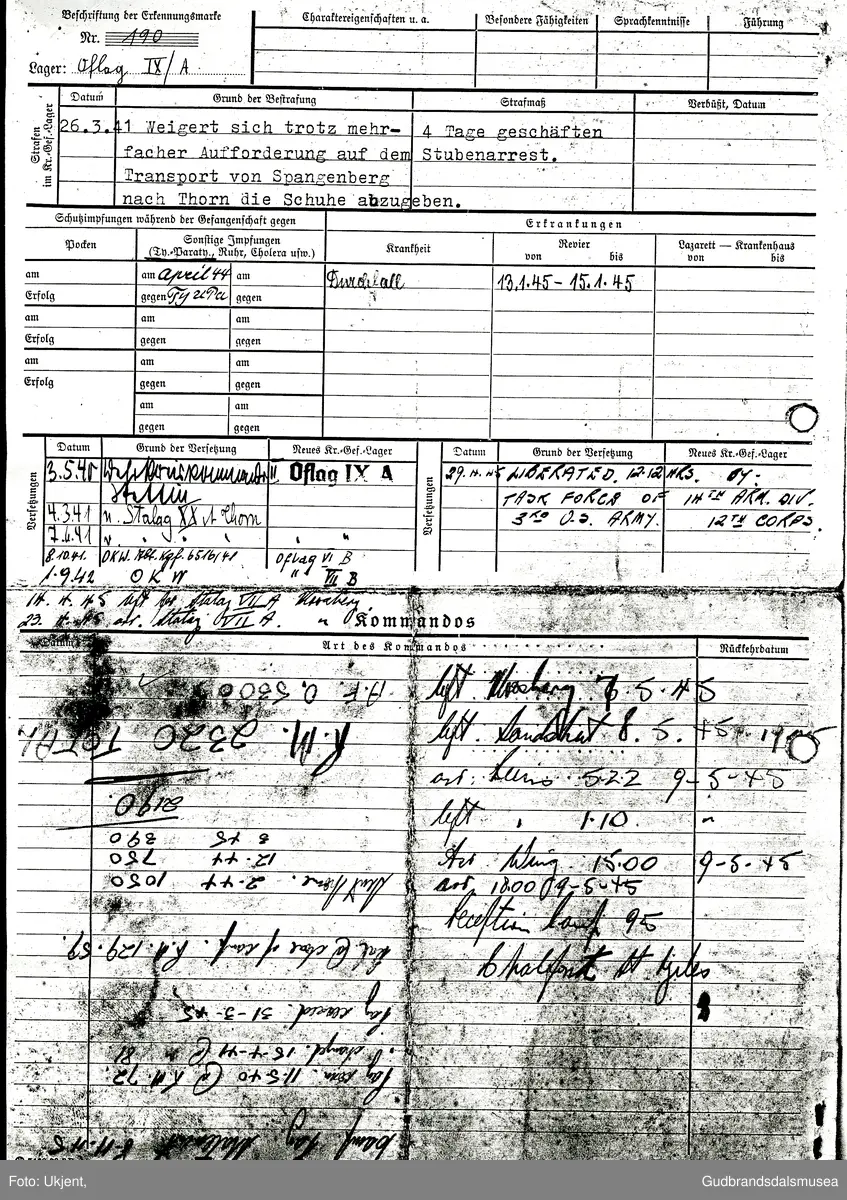 Beschriftung der Erkennungsmarke
Nr. 190
Lager: Oflag IX/A
Charaktereigenschaften u. a.
Besondere Fähigkeiten
Sprachkenntnisse
Führung
Strafen im Kr.-Gef.-Lager
Datum
Grund der Bestrafung
Strafmaß
Verbüßt, Datum
26.3.41 Weigert sich trotz mehr-
facher Aufforderung auf dem
Transport von Spangenberg
nach Thorn die Schuhe abzugeben.
4 Tage geschäften
Stubenarrest.
Schutzimpfungen während der Gefangenschaft gegen
Erkrankungen
Pocken
Sonstige Impfungen
(Ty.-Paraty., Ruhr, Cholera usw.)
Krankheit
Revier
von bis
Lazarett — Krankenhaus
von bis
am am April 44 am
Erfolg gegen Ty u Pa gegen
Durchfall
13.1.45 - 15.1.45
am am am
Erfolg gegen gegen
am am am
Erfolg gegen gegen
am am
gegen gegen
Versetzungen
Datum
Grund der Versetzung
Neues Kr.-Gef.-Lager
3.5.40 II Oflag IX A
Stettin
4.3.41 n. Stalag XX A Thorn
7.6.41 " " " " "
8.10.41. OKW. Kgf. Oflag VI B
1.9.42 OKW " VII B
Versetzungen
Datum
Grund der Versetzung
Neues Kr.-Gef.-Lager
29.4.45 LIBERATED. 12.12 HRS. BY:-
TASK FORCE OF 14TH ARM. DIV.
3RD U.S. ARMY. 12TH CORPS.
14.4.45 left for Stalag VII A Moosburg
23.4.45 arr. Stalag VII A. "
Kommandos
Datum
Art des Kommandos
Rückkehrdatum
left Moosburg 7.5.45
left Landshut 8.5.45
arr: 5.22 9-5-45
left " 1.10 "
Arr Wing 15.00 9-5-45
arr 18.00 9-5-45
Reception Camp 95
Chalfont St Giles
R.M. 2320 TOTAL
2190.
3 45 390
12.44 750
2.44 1050
Bal @ close of camp. R.M. 129.59.
Pay ceased. 31-3-45
" changed. 15-4-44 @ " 81
Pay 11.5.40 @ R.M. 72.
Camp Pay
Foto: Ukjent,
Gudbrandsdalsmusea